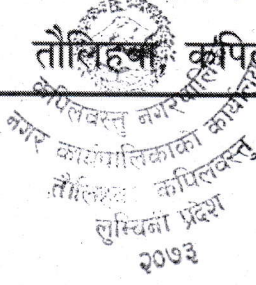 तौलिहवा, कपिल
कपिलवस्तु नगरपालिका
नगर कार्यपालिकाको कार्यालय
तौलिहवा कपिलवस्तु
लुम्बिनी प्रदेश
२०७३